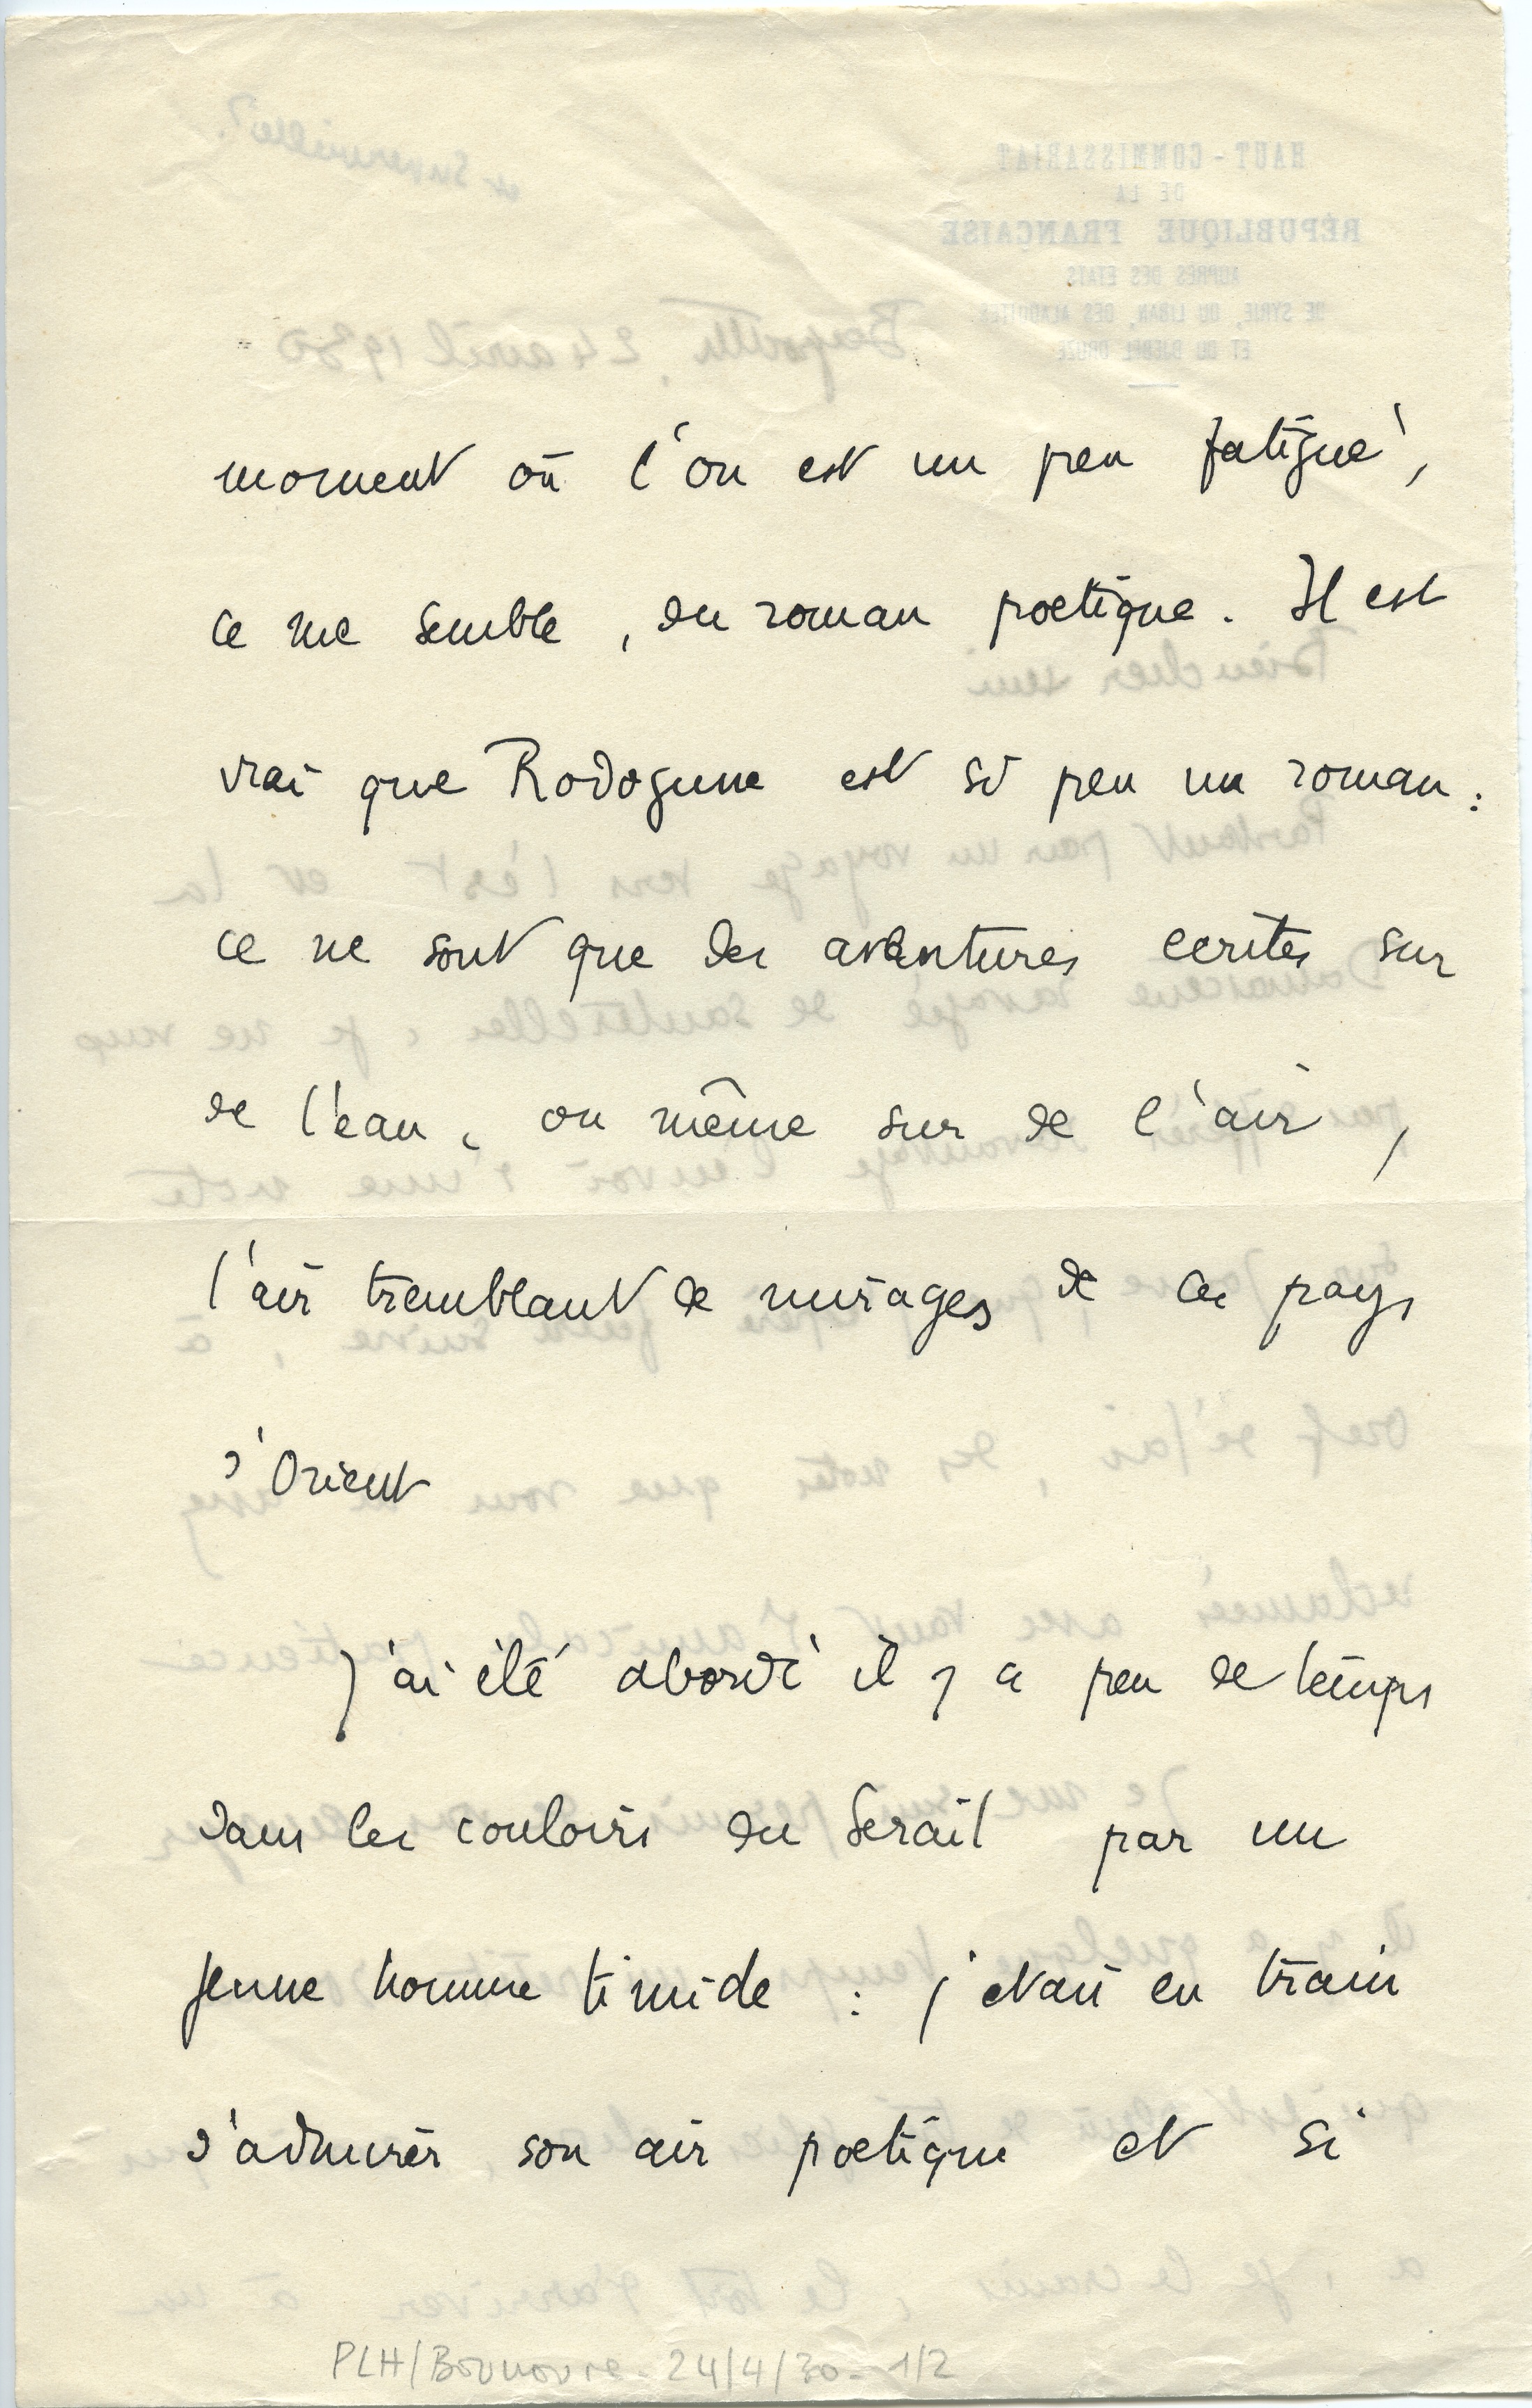 moment où l'on est un peu fatigué,
ce me semble, du roman poetique. Il est
vrai que Rodogune est si peu un roman :
ce ne sont que des aventures ecrites sur
de l'eau, ou même sur de l'air,
l'air tremblant de mirages de ces pays
d'Orient
J'ai été abordé il y a peu de temps
dans les couloirs du Serail par un
jeune homme timide : j'etais en train
d'admirer son air poetique et si
PLH/Bounoure - 24/4/30 - 1/2